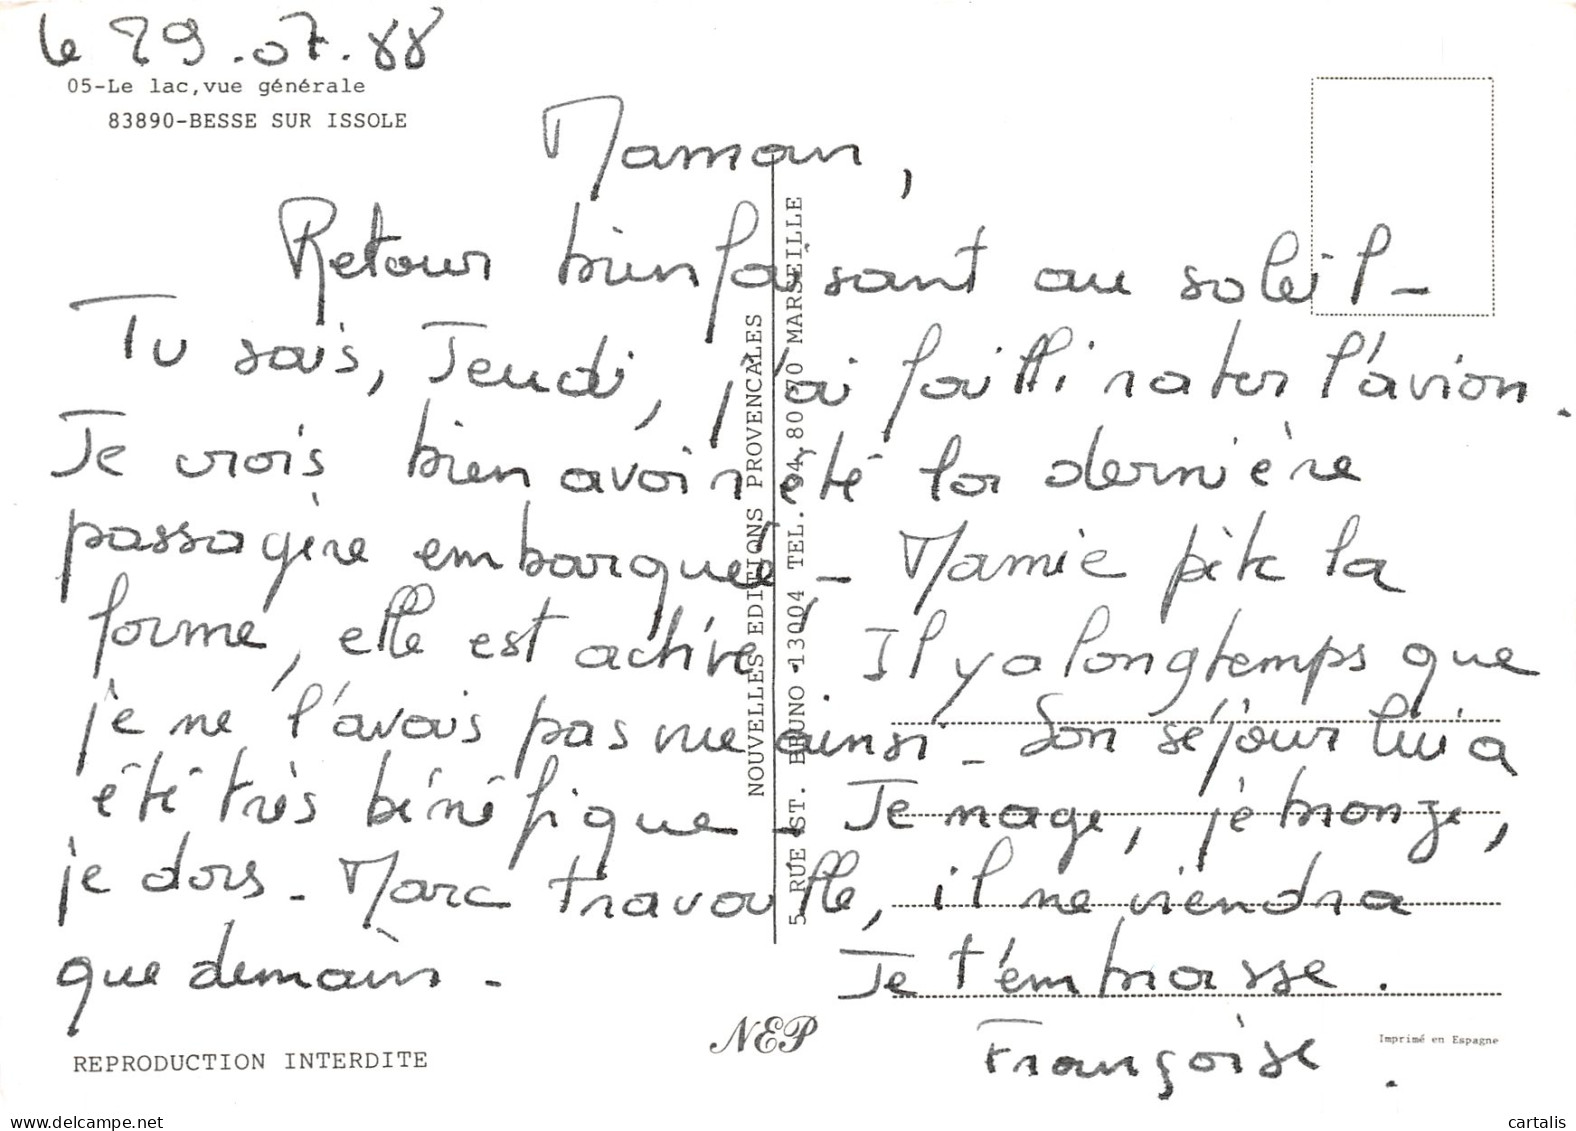 le 29.07.88
05-Le lac,vue générale
83890-BESSE SUR ISSOLE
Maman,
Retour bienfaisant au soleil -
Tu sais, Jeudi, j'ai failli rater l'avion.
Je crois bien avoir été la dernière
passagère embarquée - Mamie pète la
forme, elle est active! Il y a longtemps que
je ne l'avais pas vue ainsi - Son séjour lui a
été très bénéfique - Je nage, je bronze,
je dors - Marc travaille, il ne viendra
que demain - Je t'embrasse.
Françoise.
NOUVELLES EDITIONS PROVENCALES
5, RUE ST. BRUNO 13004 TEL. 94 80 70 MARSEILLE
NEP
REPRODUCTION INTERDITE
Imprimé en Espagne
cartalis